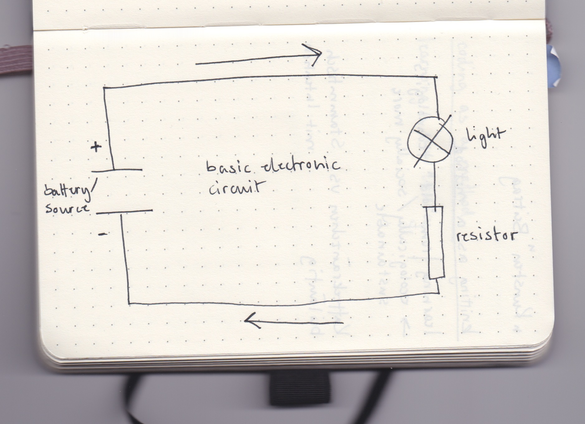 +
basic electronic
circuit
light
battery/
source
-
resistor